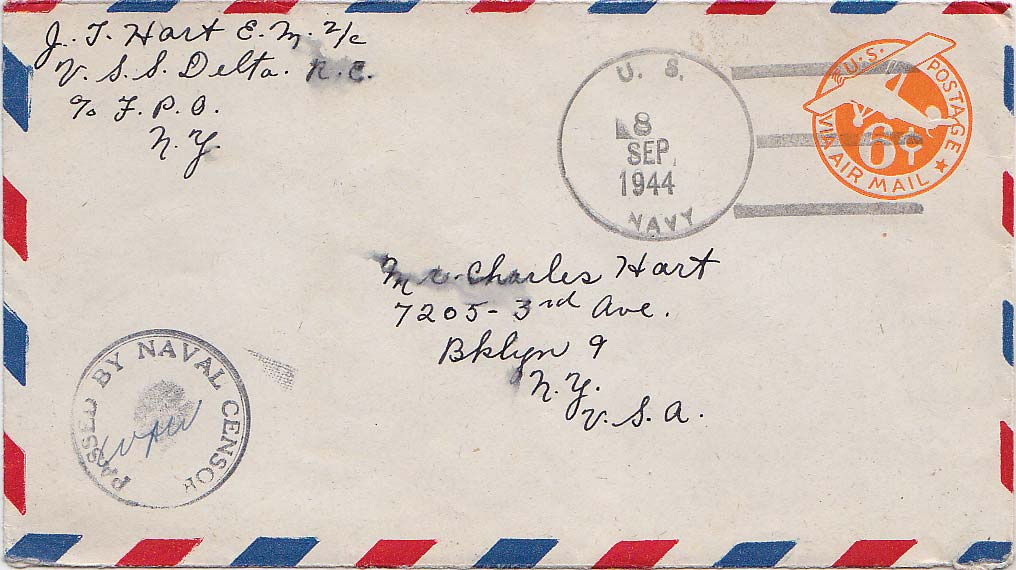 J. T. Hart E. M. 2/c
U. S. S. Delta. R. C.
c/o F. P. O.
N. Y.
U. S.
8
SEP
1944
NAVY
U.S. POSTAGE
6¢
VIA AIR MAIL
Mr. Charles Hart
7205 - 3rd Ave.
Bklyn 9
N. Y.
U. S. A.
PASSED BY NAVAL CENSOR